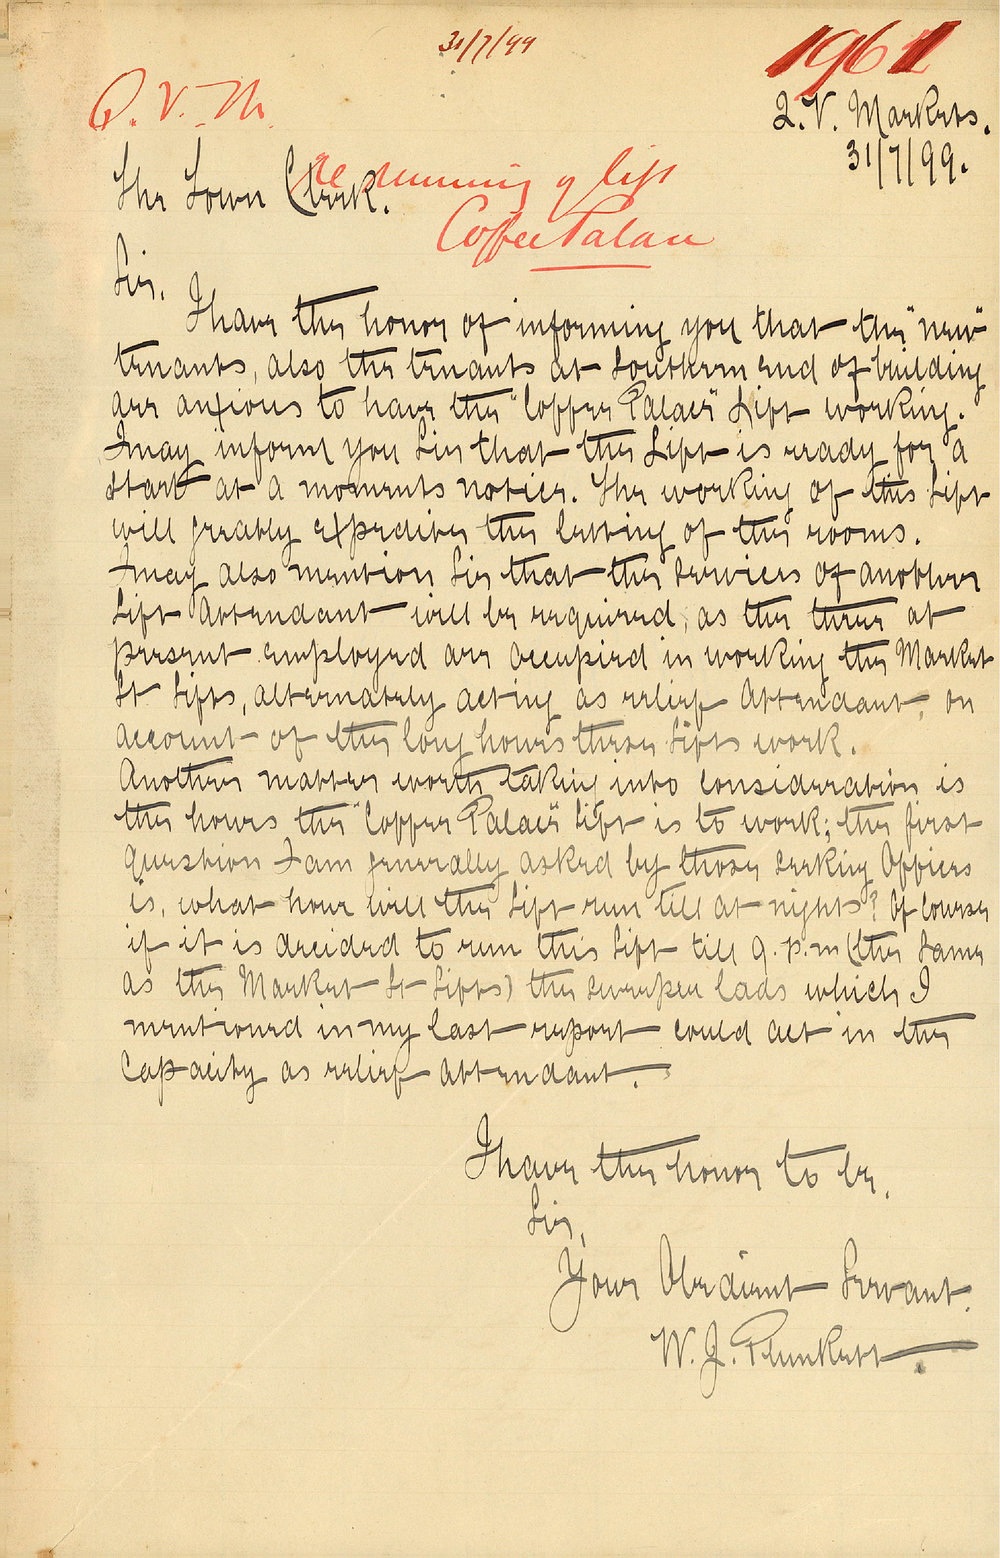 31/7/99
1961
Q. V. M.
Q. V. Markets.
31/7/99.
re running of lift
The Town Clerk.
Coffee Palace
Sir,
I have the honor of informing you that the "new"
tenants, also the tenants at Southern end of building
are anxious to have the "Coffee Palace" Lift working.
I may inform you Sir that the Lift is ready for a
start at a moments notice. The working of this Lift
will greatly expedite the letting of the rooms.
I may also mention Sir that the services of another
Lift Attendant will be required, as the three at
present employed are occupied in working the Market
St Lifts, alternately acting as relief Attendant, on
account of the long hours these Lifts work.
Another matter worth taking into consideration is
the hours the "Coffee Palace" Lift is to work; the first
question I am generally asked by those seeking Offices
is, what hour will the Lift run till at nights? Of course
if it is decided to run this Lift till 9. p.m (the same
as the Market St Lifts) the sweeper lads which I
mentioned in my last report could act in the
capacity as relief attendant.
I have the honor to be,
Sir,
Your Obedient Servant.
W. J. Plunkett.